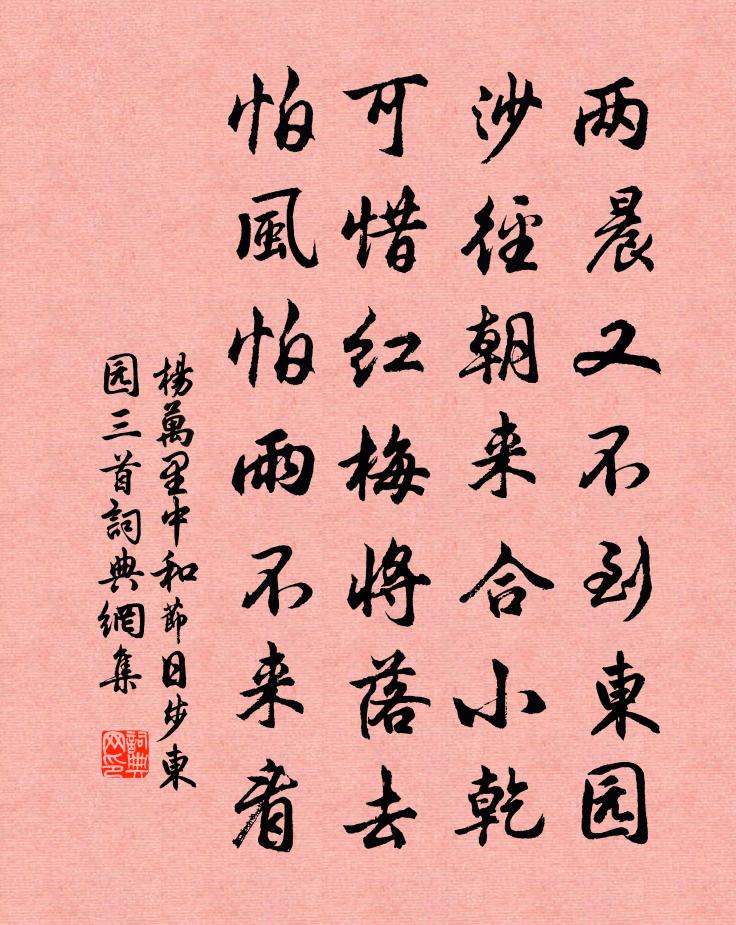 两晨又不到東园
沙徑朝来合小乾
可惜红梅將落去
怕風怕雨不来看
楊萬里中和節日步東
园三首詞典網集
詞典
网印